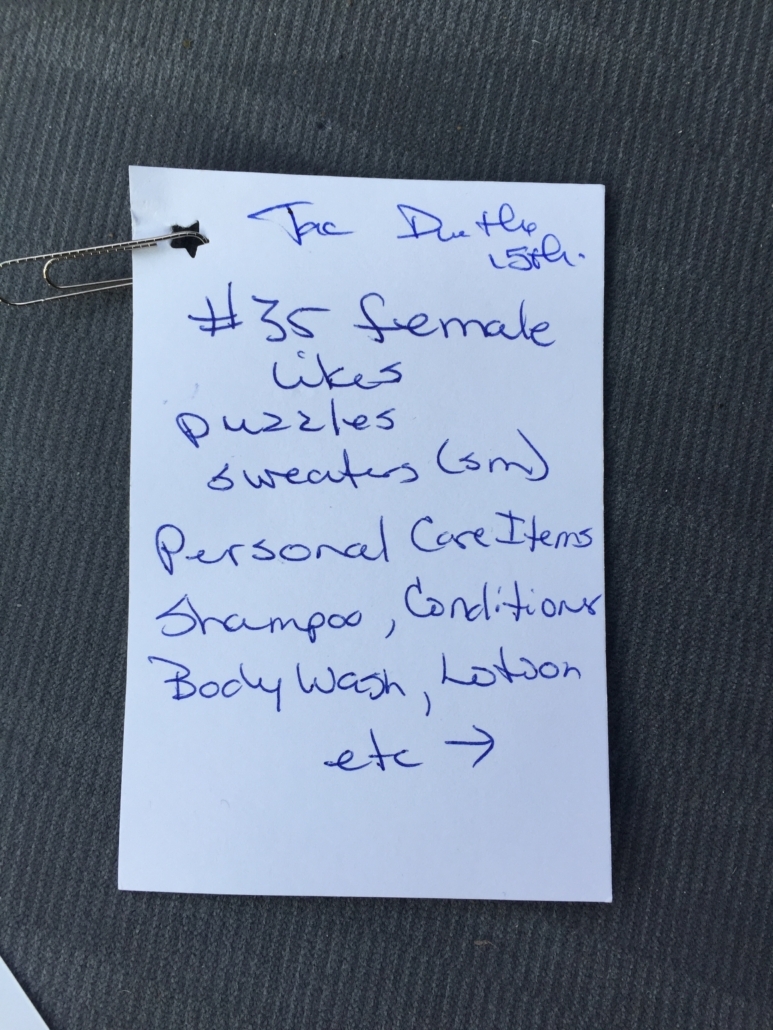 Due the
15th.
#35 female
likes
puzzles
sweaters (sm)
Personal Care Items
Shampoo, Conditioner
Body Wash, Lotion
etc →